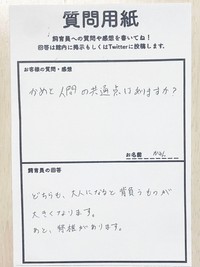 質問用紙
飼育員への質問や感想を書いてね！
回答は館内に掲示もしくはTwitterに投稿します。
お客様の質問・感想
かめと人間の共通点はありますか？
お名前
飼育員の回答
どちらも、大人になると背負うものが
大きくなります。
あと、脊椎があります。